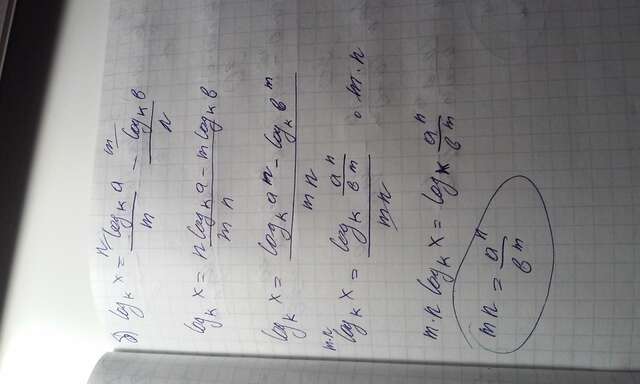 б) log_k x = n/ log_k a / m − m/ log_k в / n
log_k x = n log_k a − m log_k в / m n
log_k x = log_k aⁿ − log_k вᵐ / m n
m·n log_k x = log_k aⁿ/вᵐ / mn · m·n
m·n log_k x = log_k aⁿ/вᵐ
mn = aⁿ/вᵐ